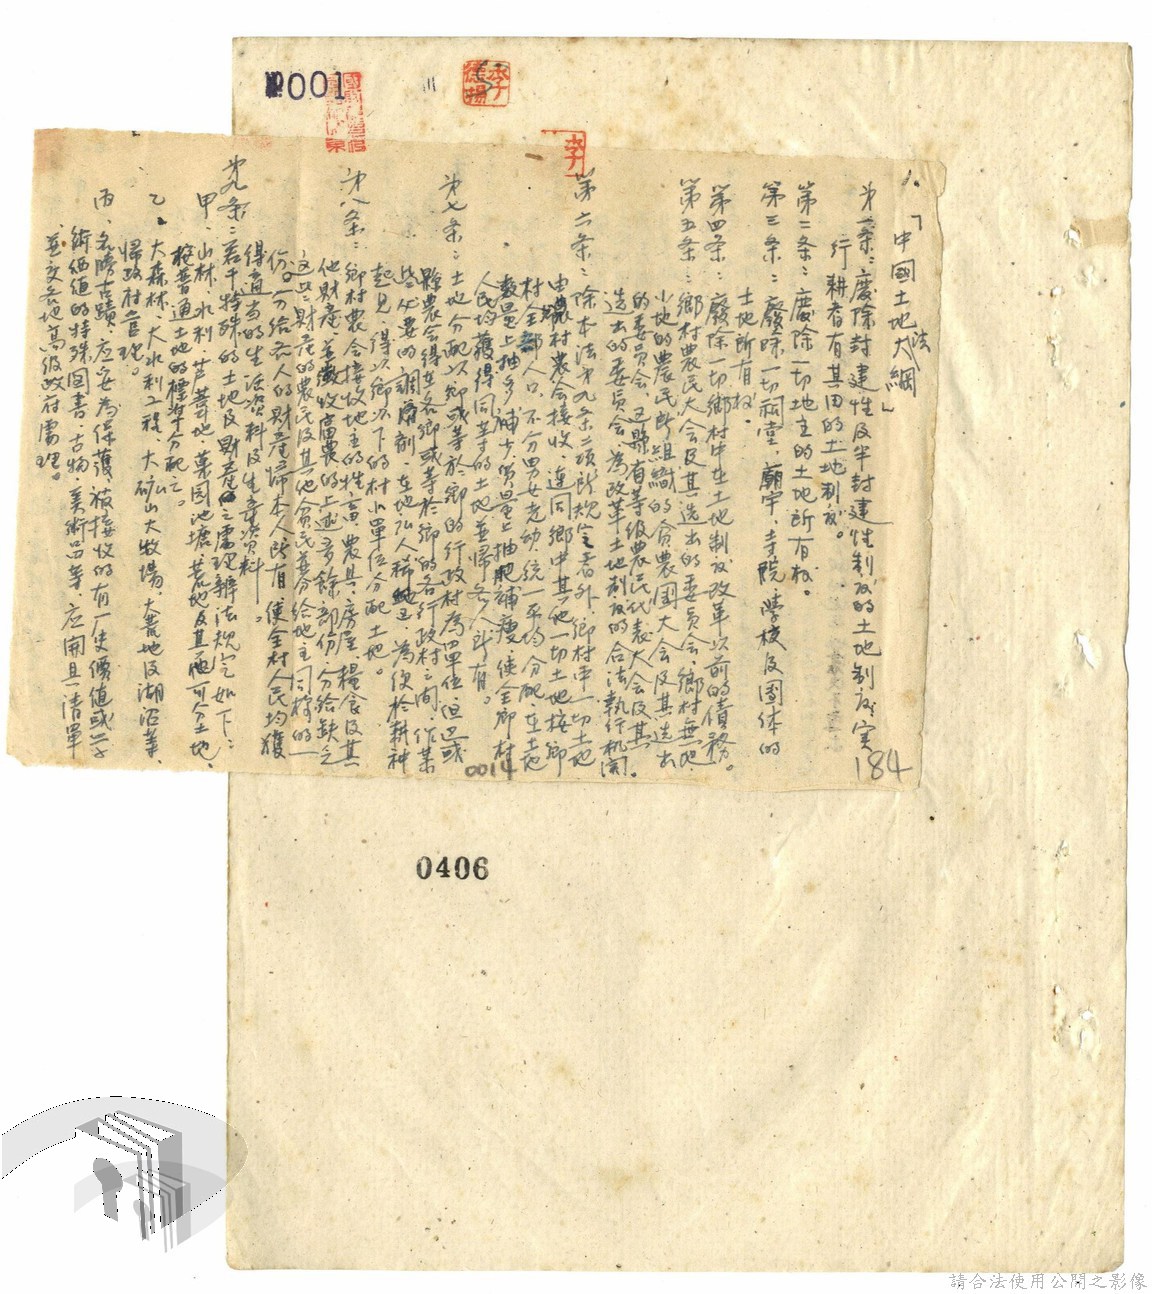 №001
川
李
1.「中國土地法大綱」
第一条：廢除封建性及半封建性制度的土地制度、实
行耕者有其田的土地制度。
第二条：廢除一切地主的土地所有权。
第三条：廢除一切祠堂、廟宇、寺院、學校及團体的
土地所有权。
第四条：廢除一切鄉村中在土地制度改革以前的債務。
第五条：鄉村農民大会及其选出的委員会、鄉村無地、
小地的農民所組織的貧農團大会及其选出
的委員会、区縣省等级農民代表大会及其
选出的委員会、為改革土地制度的合法執行机関。
第六条：除本法第九条二項所規定者外、鄉村中一切土地
由鄉村農会接收、連同鄉中其他一切土地按鄉
村全部人口、不分男女老幼、統一平均分配、在土地
数量上抽多補少、质量上抽肥補瘦、使全鄉村
人民均獲得同等的土地並归各人所有。
第七条：土地分配以鄉或等於鄉的行政村為单位、但区或
縣農会得在各鄉或等於鄉的各行政村之间、作某
些必要的調剂、在地弘人稀地区、為便於耕种
起见、得以鄉以下的村小單位分配土地。
第八条：鄉村農会接收地主的牲畜、農具、房屋、糧食及其
他財產、並徵收富農的上述多餘部份、分給缺乏
这些財產的農民及其他貧民並分給地主同样的一
份。分給各人的財產归本人所有、使全村人民均獲
得適当的生活資料及生產資料。
第九条：若干特殊的土地及財產之處理辨法規定如下：
甲、山林、水利、芦葦地、菓园池塘、荒地及其他可分土地、
按普通土地的標準分配之。
乙、大森林、大水利工程、大矿山大牧場、大荒地及湖沼等、
归政府管理。
丙、名勝古蹟、应妥為保護、被接收的有历史價值或学
術価值的特殊图書、古物、美術品等、应開具清單
並交各地高级政府處理。
184
0014
0406
請合法使用公開之影像